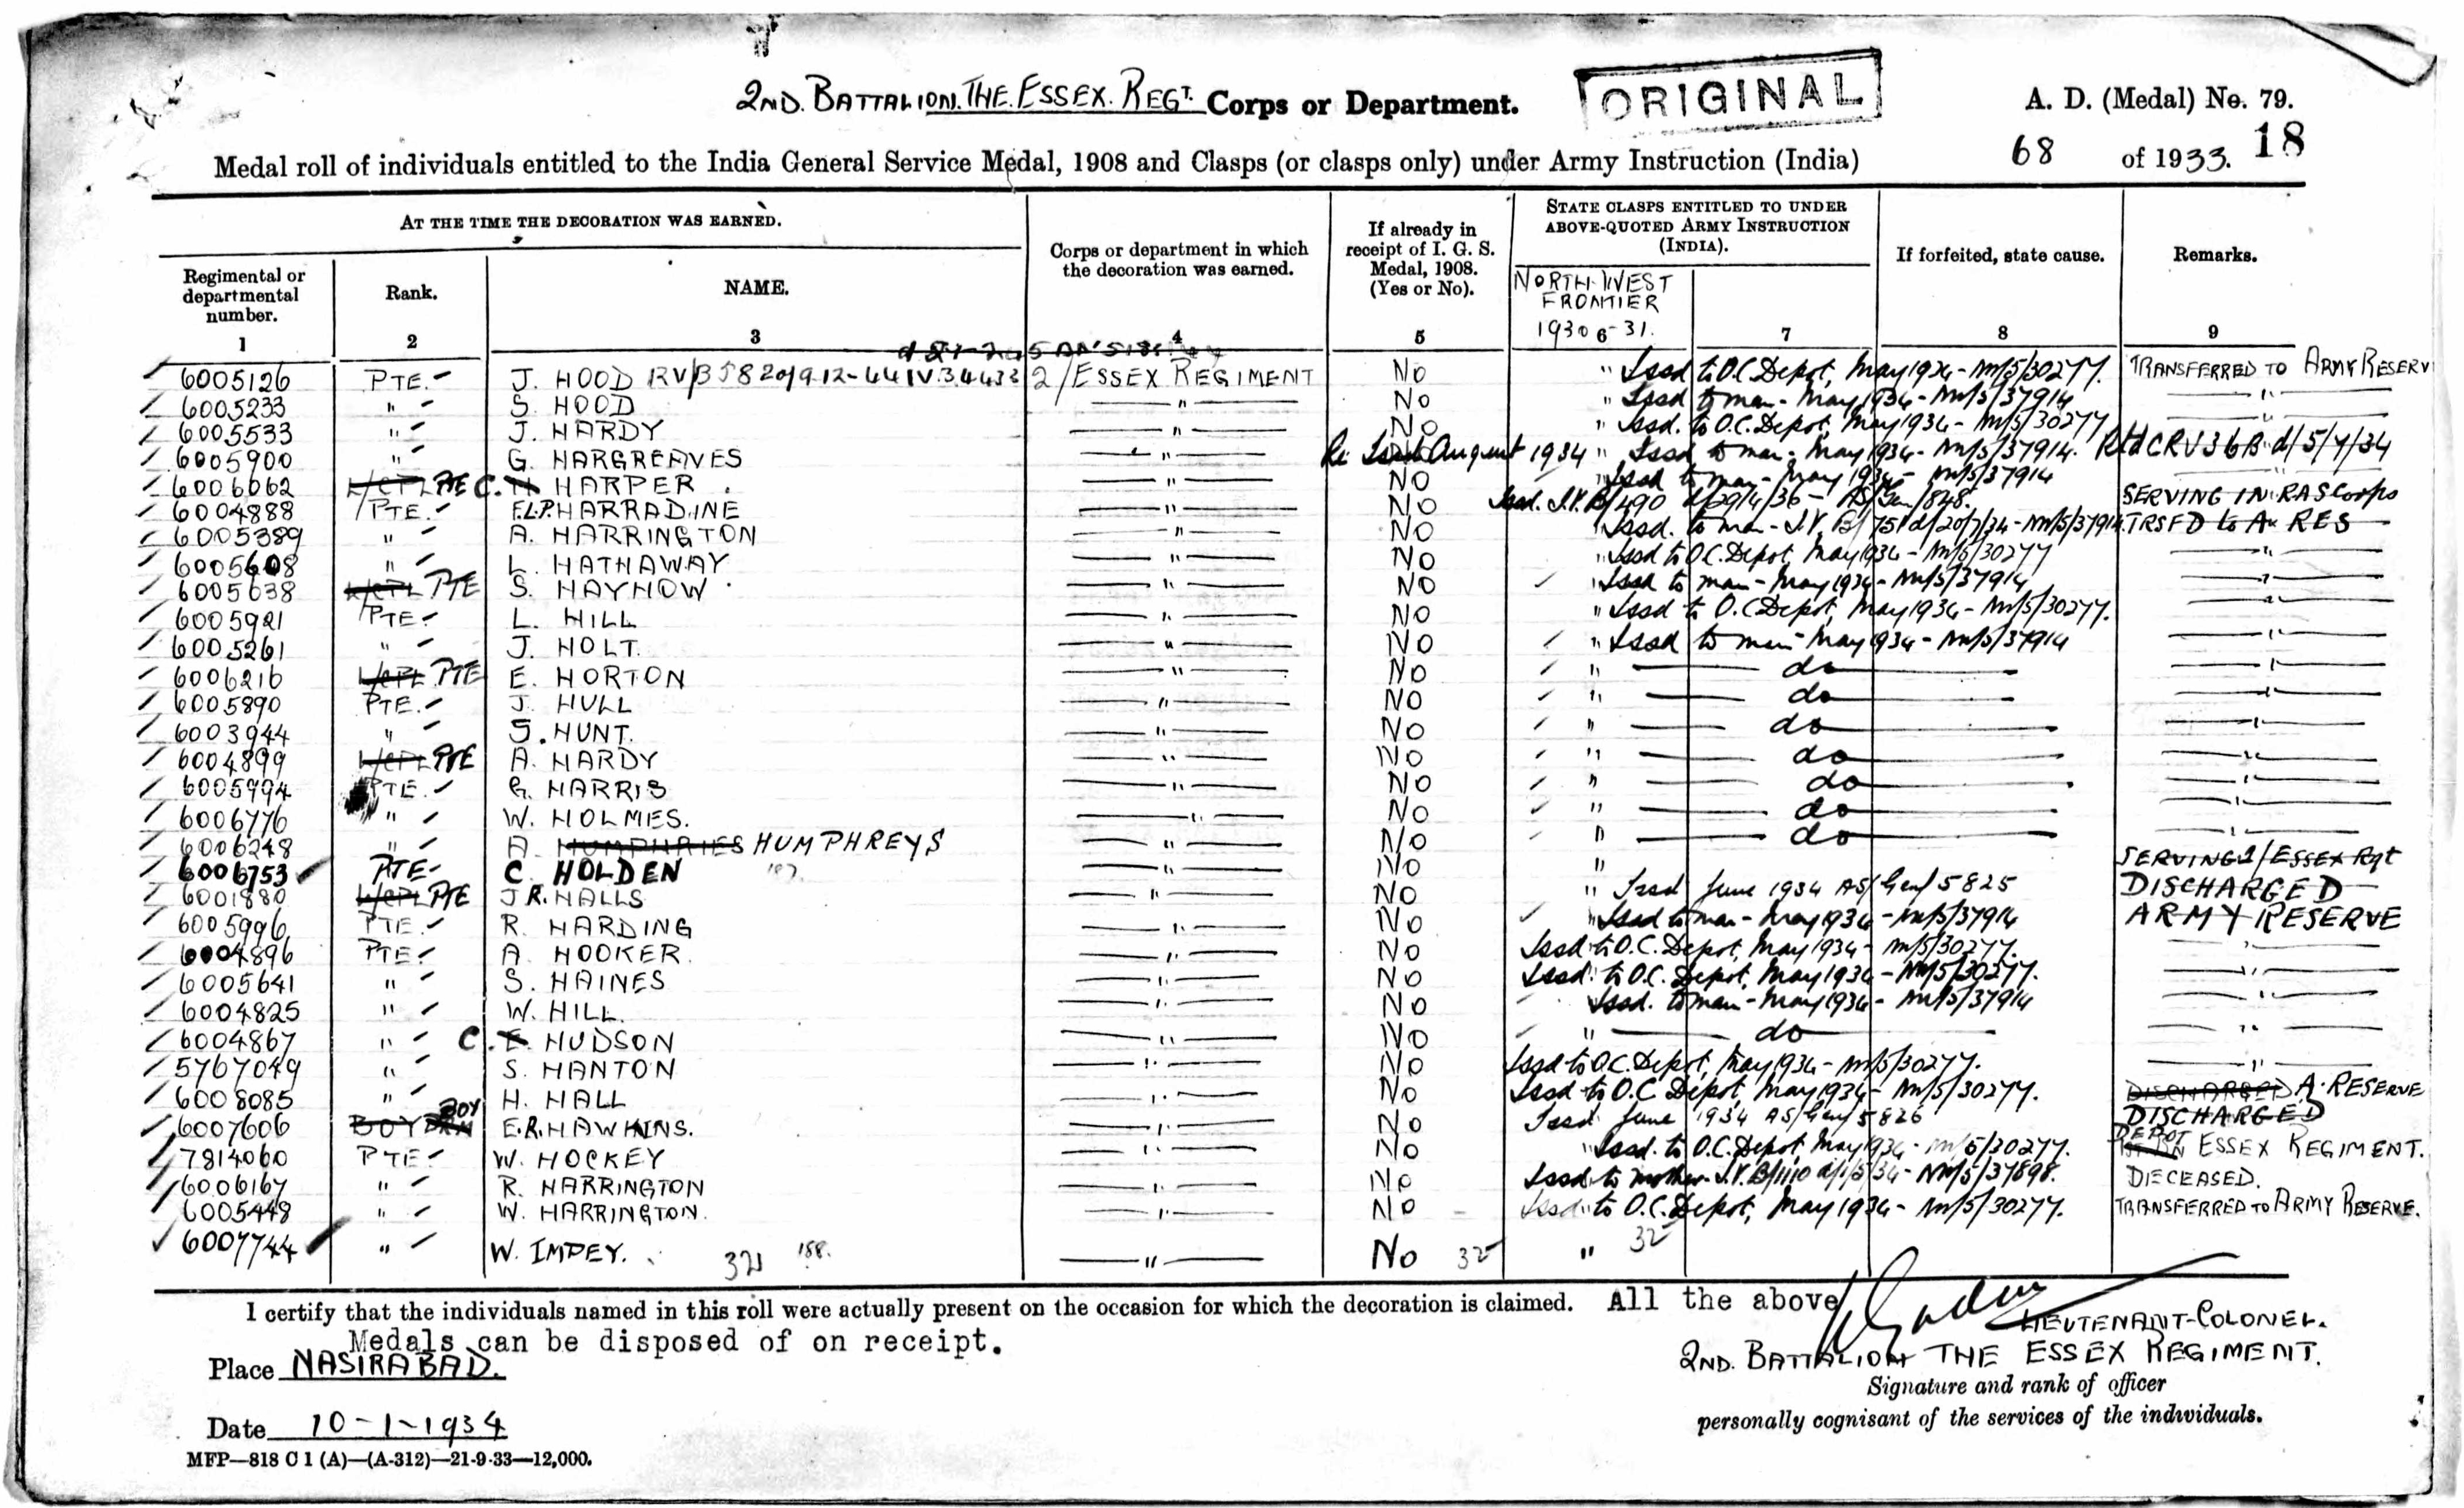 2ND. BATTALION. THE. ESSEX. REGT. Corps or Department.
ORIGINAL
A. D. (Medal) No. 79.
Medal roll of individuals entitled to the India General Service Medal, 1908 and Clasps (or clasps only) under Army Instruction (India) 68 of 1933. 18
AT THE TIME THE DECORATION WAS EARNED.
Regimental or departmental number.
Rank.
NAME.
Corps or department in which the decoration was earned.
If already in receipt of I. G. S. Medal, 1908. (Yes or No).
STATE CLASPS ENTITLED TO UNDER ABOVE-QUOTED ARMY INSTRUCTION (INDIA).
NORTH-WEST FRONTIER 1930-31.
If forfeited, state cause.
Remarks.
1 2 3 4 5 6 7 8 9
6005126 PTE. J. HOOD 2/ESSEX REGIMENT No " Issd to O.C. Depot, May 1934 - NM/5/30277. TRANSFERRED TO ARMY RESERV
6005233 " S. HOOD " No " Issd to man - May 1934 - NM/5/37914 "
6005533 " J. HARDY " No " Issd. to O.C. Depot, May 1934 - NM/5/30277 "
6005900 " G. HARGREAVES " Re Issd August 1934 " Issd to man - May 1934 - NM/5/37914. Rtd CRV36B d/5/7/34
6006062 L/CPL PTE C. H HARPER. " NO " Issd to man - May 1934 - NM/5/37914
6004888 PTE. F.L.P. HARRADINE " NO Issd. I.V. B/490 d/29/4/36 - AS/Gen/848. SERVING IN RASCorps
6005389 " A. HARRINGTON " NO " Issd. to man - I.V. B/751 d/20/7/34 - NM/5/37914. TRSFD to A. RES
6005608 " L. HATHAWAY " No " Issd to O.C. Depot, May 1934 - NM/5/30277 "
6005638 L/CPL PTE S. HAYHOW " NO " Issd to man - May 1934 - NM/5/37914 "
6005921 PTE. L. HILL " NO " Issd to O.C. Depot, May 1934 - NM/5/30277. "
6005261 " J. HOLT. " NO " Issd to man - May 1934 - NM/5/37914 "
6006216 L/CPL PTE E. HORTON " NO " do "
6005890 PTE. J. HULL " NO " do "
6003944 " S. HUNT. " NO " do "
6004899 L/CPL PTE A. HARDY " NO " do "
6005994 PTE. G. HARRIS " NO " do "
6006776 " W. HOLMES. " NO " do "
6006248 " A. HUMPHRIES HUMPHREYS " No " do "
6006753 PTE. C HOLDEN " No " SERVING 1/ESSEX Rgt
6001880 L/CPL PTE J.R. HALLS " NO " Issd June 1934 AS/Gen/5825 DISCHARGED
6005996 PTE. R. HARDING " NO " Issd to man - May 1934 - NM/5/37914 ARMY RESERVE
6004896 PTE. A. HOOKER. " NO Issd to O.C. Depot, May 1934 - NM/5/30277. "
6005641 " S. HAINES " NO Issd " to O.C. Depot, May 1934 - NM/5/30277. "
6004825 " W. HILL. " NO Issd. to man - May 1934 - NM/5/37914 "
6004867 " C. E. HUDSON " NO " do "
5767049 " S. HANTON " No Issd to O.C. Depot, May 1934 - NM/5/30277. "
6008085 " H. HALL " No Issd to O.C Depot, May 1934 - NM/5/30277. DISCHARGED A. RESERVE
6007606 BOY DRM BOY E.R. HAWKINS. " No Issd June 1934 AS/Gen/5826 DISCHARGED
7814060 PTE. W. HOCKEY " No " Issd. to O.C. Depot, May 1934 - NM/5/30277. 1ST BN DEPOT ESSEX REGIMENT.
6006167 " R. HARRINGTON " No Issd to mother I.V. B/1110 d/1/5/34 - NM/5/37898. DECEASED.
6005448 " W. HARRINGTON. " NO Issd " to O.C. Depot, May 1934 - NM/5/30277. TRANSFERRED TO ARMY RESERVE.
6007744 " W. IMPEY. 188. " No 32 " 32
I certify that the individuals named in this roll were actually present on the occasion for which the decoration is claimed. All the above
Medals can be disposed of on receipt.
LIEUTENANT-COLONEL.
Place NASIRABAD.
2ND. BATTALION THE ESSEX REGIMENT.
Signature and rank of officer
personally cognisant of the services of the individuals.
Date 10-1-1934
MFP—818 C 1 (A)—(A-312)—21-9-33—12,000.